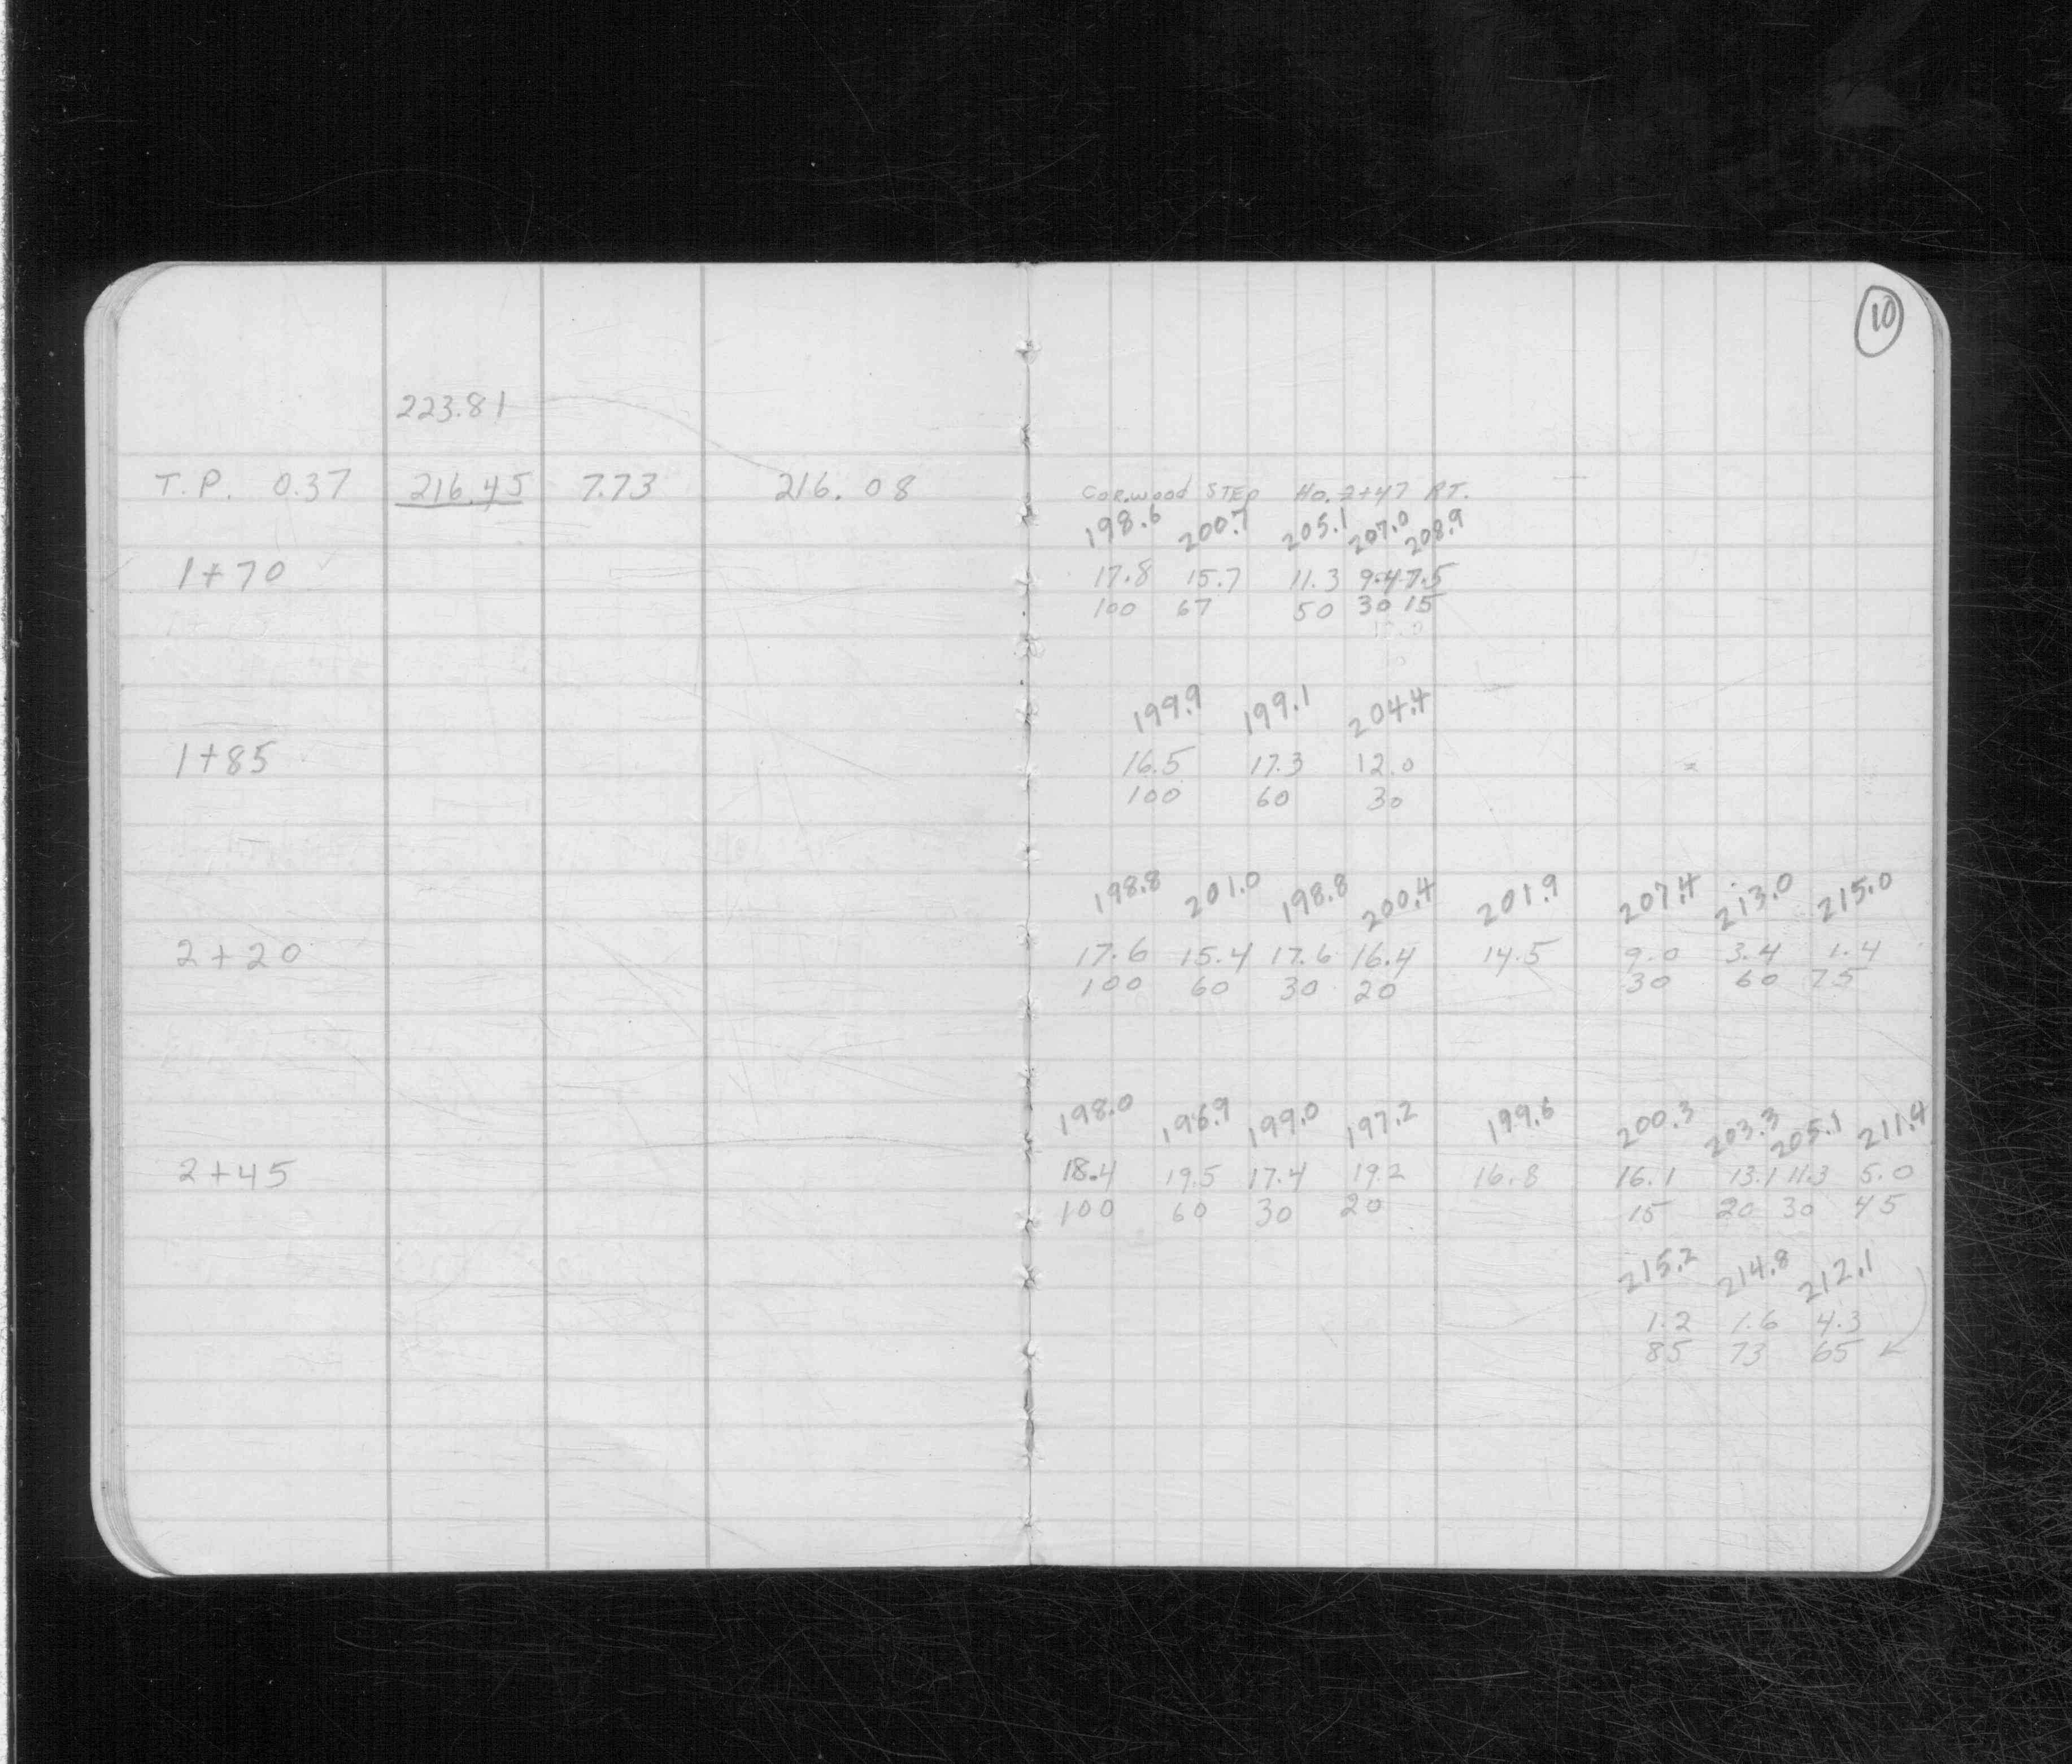 10
223.81
T.P. 0.37 216.45 7.73 216.08 Cor. wood STEP Ho. 2+47 RT.
198.6 200.7 205.1 207.0 208.9
1+70 17.8 15.7 11.3 9.4 7.5
100 67 50 30 15
199.9 199.1 204.4
1+85 16.5 17.3 12.0
100 60 30
198.8 201.0 198.8 200.4 201.9 207.4 213.0 215.0
2+20 17.6 15.4 17.6 16.4 14.5 9.0 3.4 1.4
100 60 30 20 30 60 75
198.0 196.9 199.0 197.2 199.6 200.3 203.3 205.1 211.4
2+45 18.4 19.5 17.4 19.2 16.8 16.1 13.1 11.3 5.0
100 60 30 20 15 20 30 45
215.2 214.8 212.1
1.2 1.6 4.3
85 73 65